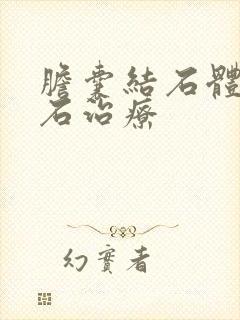 膽囊結石體
石治療
幻實者